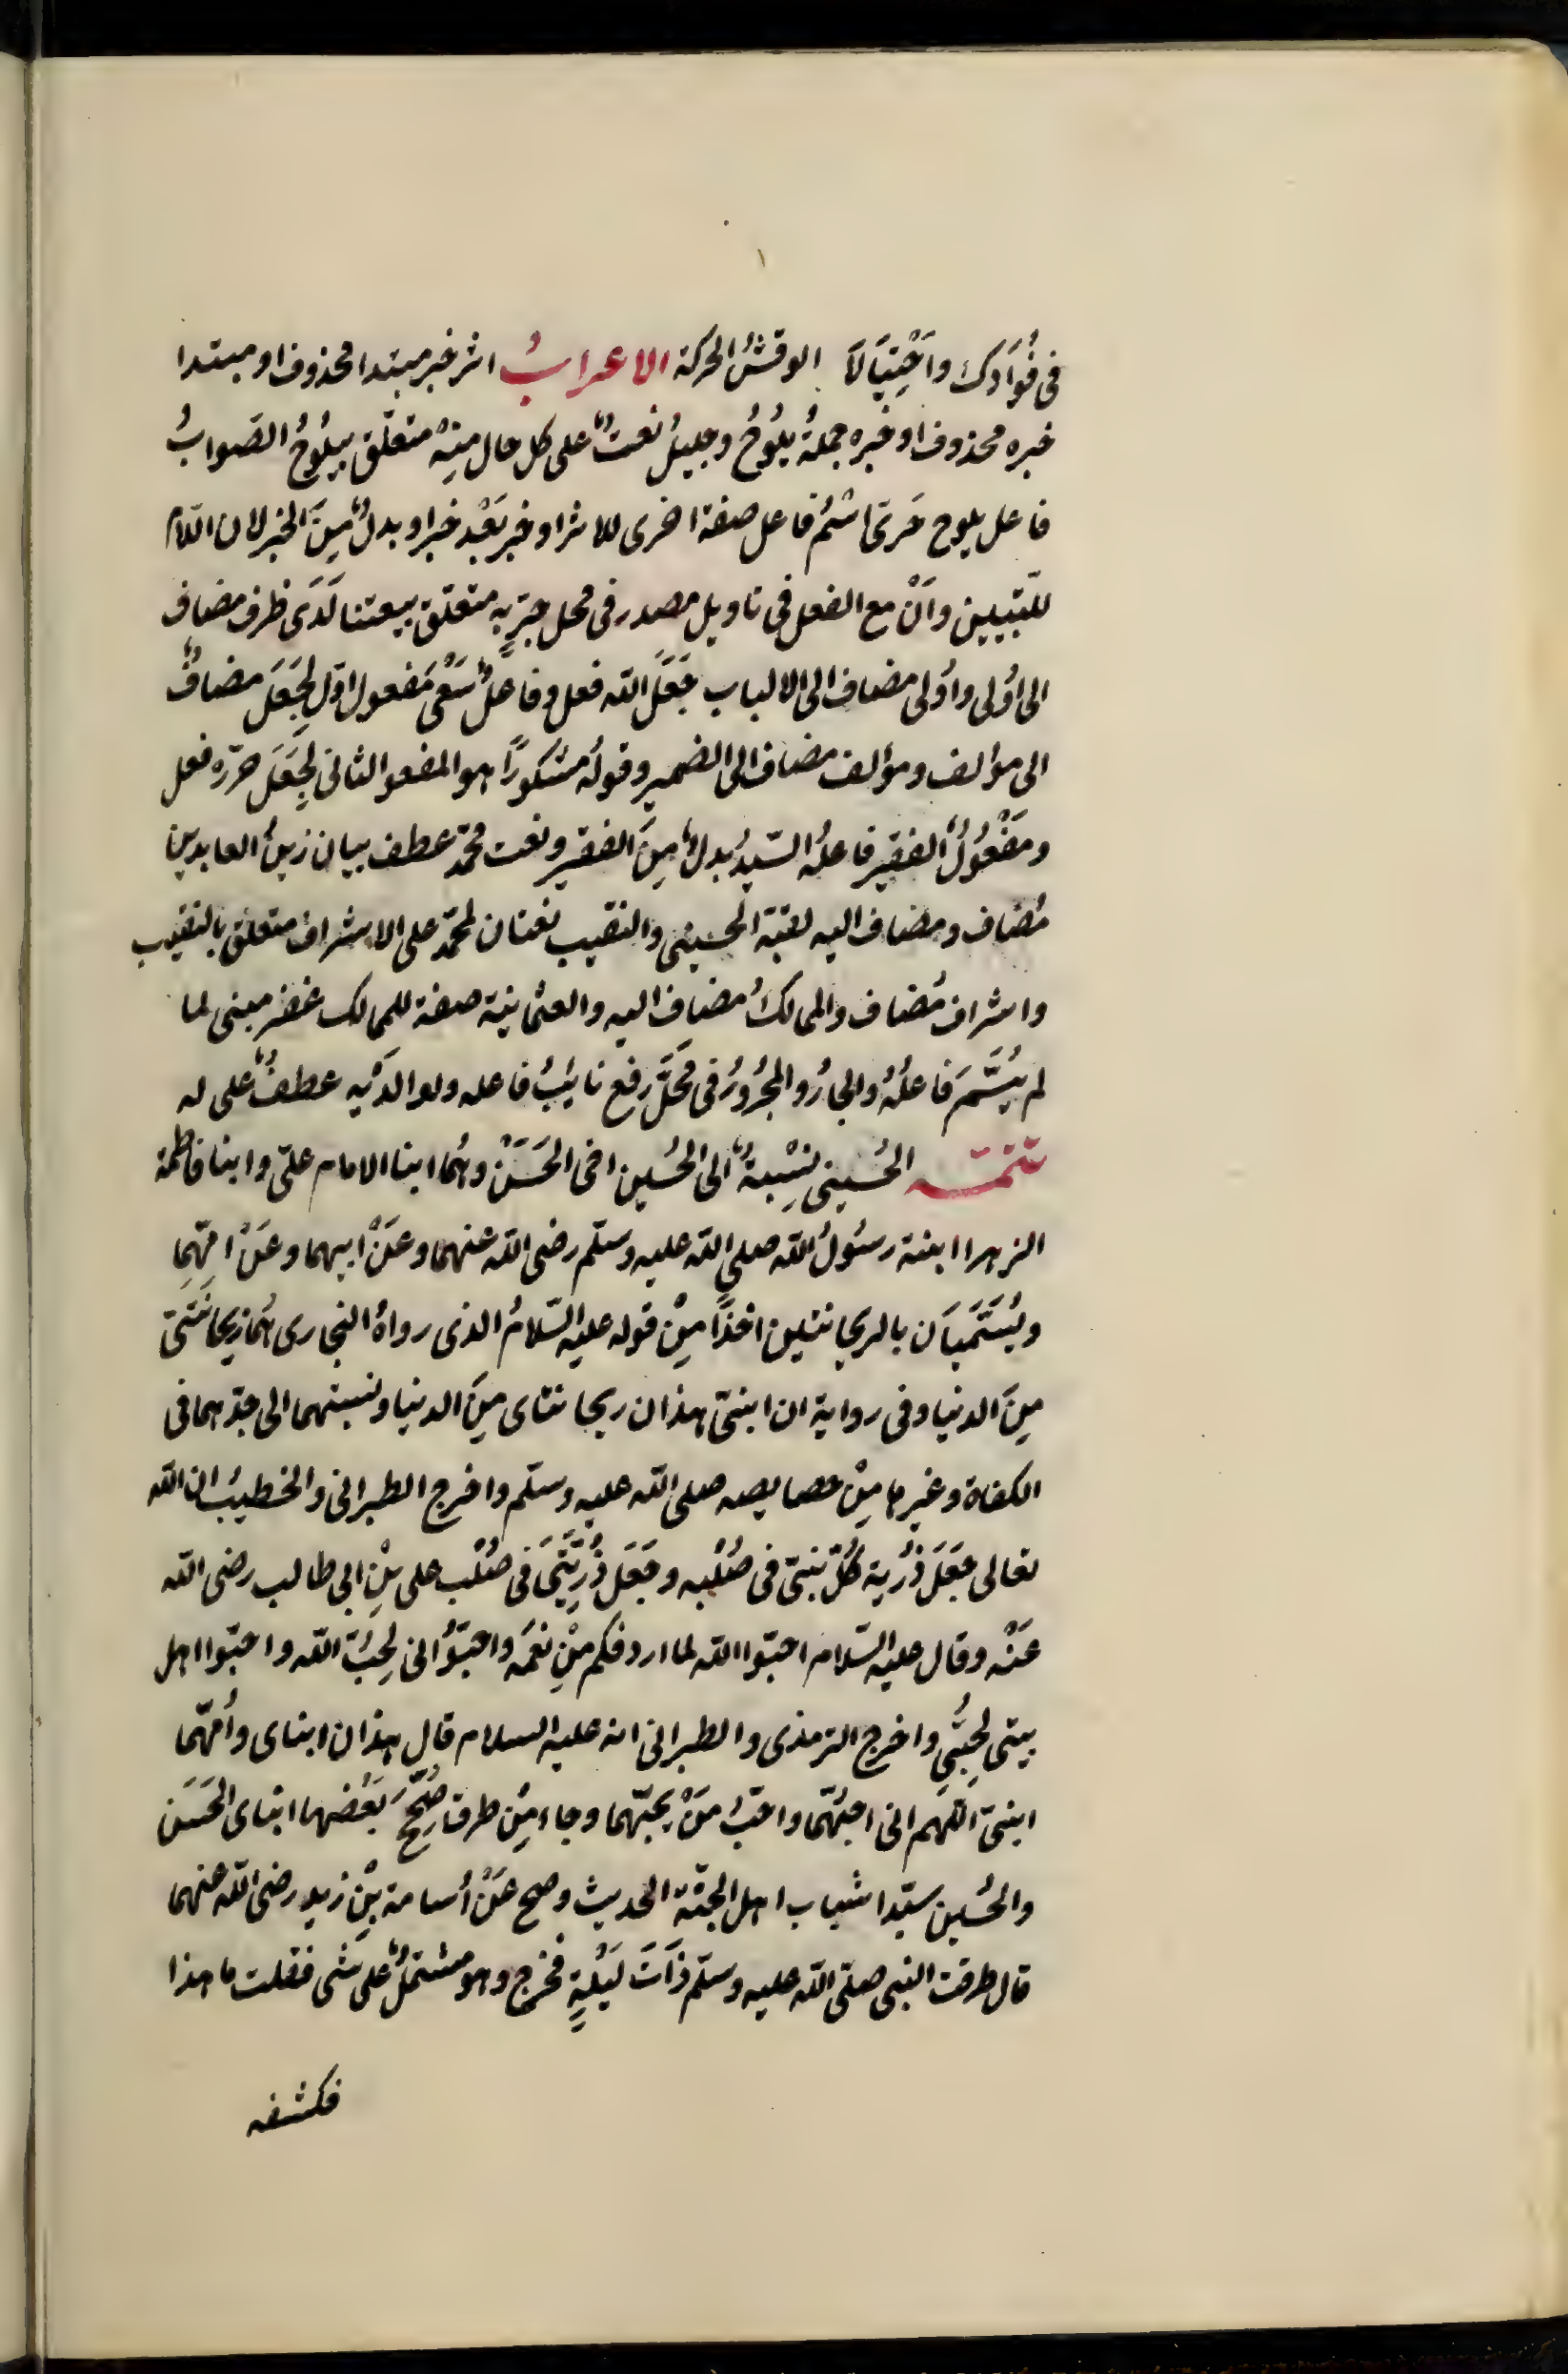 فى فُوَادَكَ واَخْتِيَالَا الوقشُ الحركة الاعرابُ اثر خبر مبتدا محذوف او مبتدا
خبره محذوف او خبره جملةُ يلُوحُ وجليلُ نعتٌ على كل حال مِنهُ متعلّق بيلُوحُ الصَوابُ
فاعل يلوح حَرىَّ اسْمُ فاعل صفة اخرى للاثر او خبر بَعْد خبر او بدلٌ مِنَ الخبر لان اللام
للتبيين واَنْ مع الفعل فى تاويل مصدر فى محل جرٍّ به متعلق بيعتنا لَدَى ظرف مضاف
الى اوُلى واوُلى مضاف الى الالباب جَعَلَ الله فعل وفاعلٌ سَعْىَ مَفعول اوّل لِجَعَلَ مضافٌ
الى مؤلف ومؤلف مضاف الى الضمير وقولُه مَشكورًا هو المفعو الثانى لِجَعَلَ حرّره فعل
ومَفْعُولٌ الفقير فاعلُه السّيدُ بدلٌ مِنَ الفقير ونعت محمّد عطف بيان زينُ العابدين
مُضاف ومضاف اليه لقبَه الحسينى والنقيب نعتان لمحمّد على الاشراف متعلق بالنقيب
واشراف مُضاف والممالكُ مضاف اليه والعثمانية صفة للممالك غفر مبنى لما
لم يُسَمَّ فاعلُهُ والجارُ والمجُرُورُ فى مَحَلّ رفع نائبُ فاعله ولوالدَيْه عطفٌ على له
تتمه الحُسينى نِسْبةٌ الى الحُسين اخى الحَسَنْ وهُما ابنا الامام علىّ وابنا فاطمة
الزهرا ابنة رسُولُ الله صلى الله عليه وسلم رضى الله عنهما وعَنْ ابيهما وعَنْ امّهِما
ويُسَمَّيَان بالريحانتين اخذًا مِنْ قوله عليه السّلامُ الذى رواهُ البخارى هُما رَيحانَتَىّ
مِنَ الدنيا وفى رواية ان ابنىّ هذان ريحانتاى مِنَ الدنيا ونسبتهما الى جدّهما فى
الكفاة وغيرها مِنْ خصايصه صلى الله عليه وسلّم واخرج الطبرانى والخطيبُ ان الله
تعالى جَعَلَ ذُرِّية كُلّ نبىّ فى صُلبه وجَعَل ذُرِّيَّتى فى صُلب على بْنِ ابى طالب رضى الله
عَنْه وقال عليه السّلام احبّوا الله لما ارد فكم مِنْ نعَمه واحبّوُنى لِحبُّ الله واحبّوا اهل
بيتى لِحُبّى واخرج الترمذى والطبرانى انه عليه السلام قال هذان ابناى وأمّهما
ابنتى اللّهم انى احبّهُما واحبُّ مَنْ يحبّهما وجاء مِنْ طرق صُحّحَ بَعْضها ابناى الحَسَن
والحُسين سيّدا شباب اهل الجنّة الحديث وصح عَنْ أسامة بْنِ زيد رضى الله عنهما
قال طرقت النبى صلّى الله عليه وسلّم ذاَتَ لَيْلةٍ فخرج وهو مشتملٌ على شى فقلت ما هذا
فكشفه